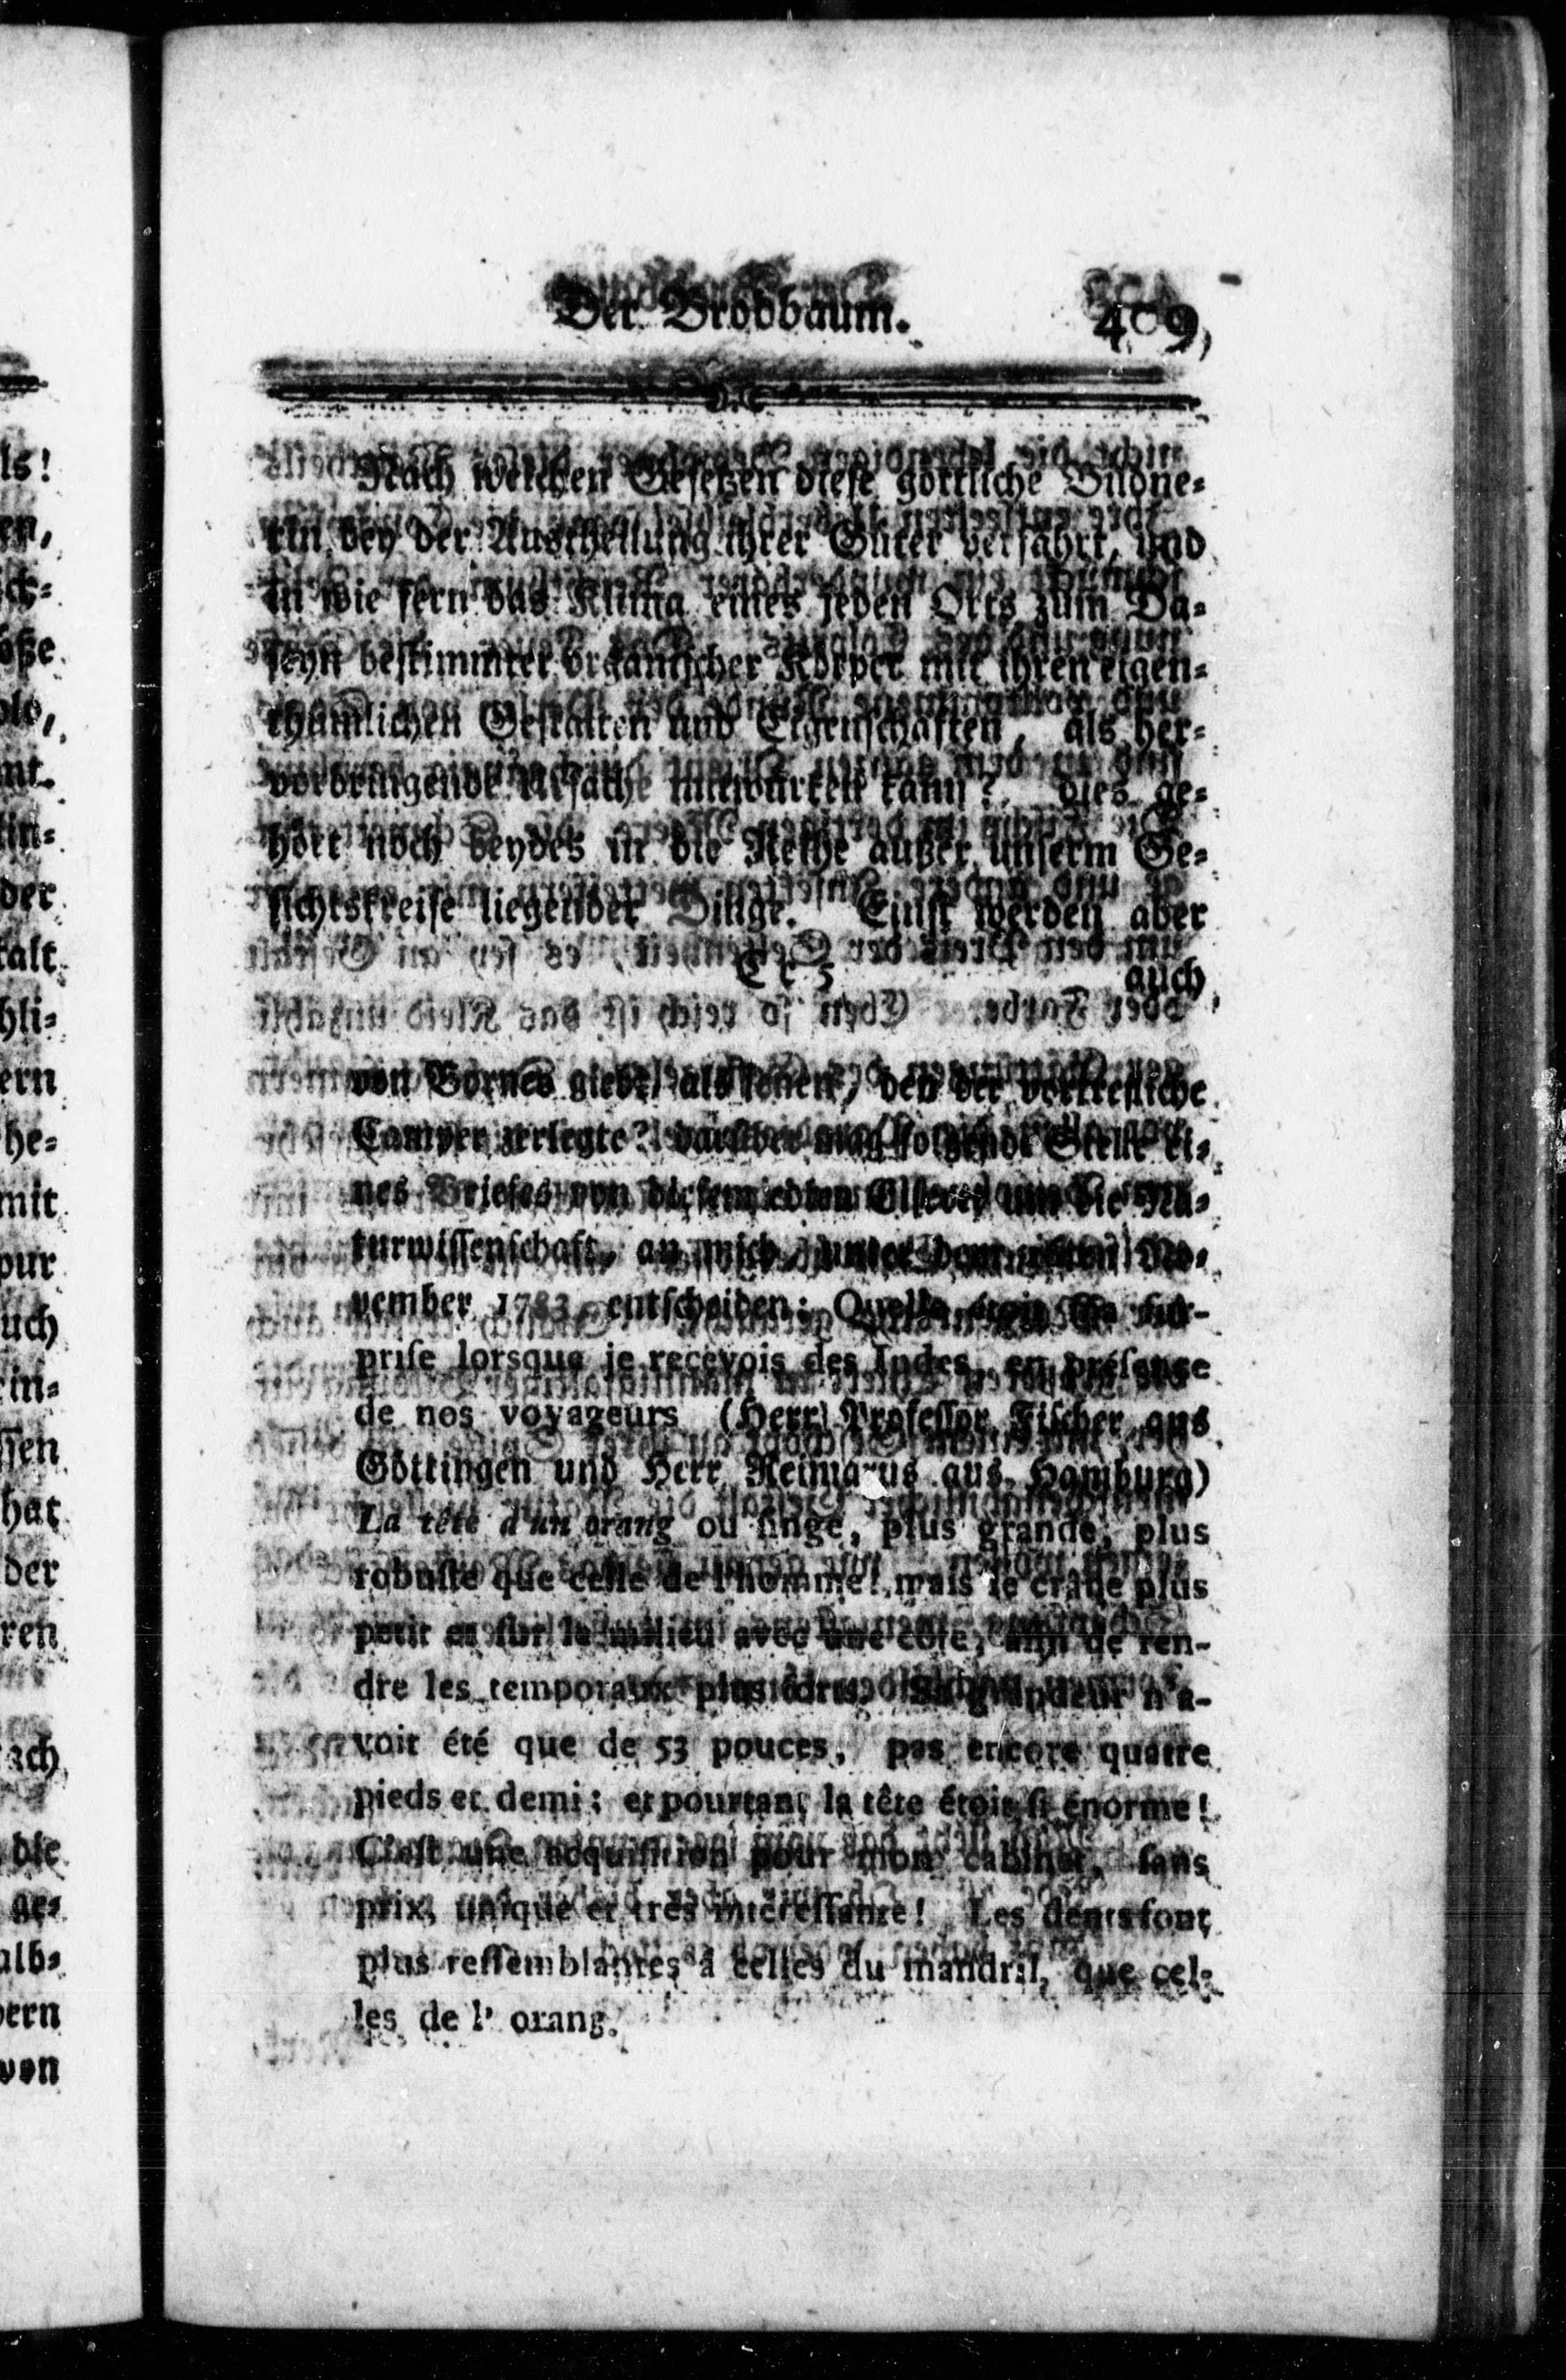 Der Brodbaum. 409
Nach welchen Gesetzen diese göttliche Bildne-
rin bey der Austheilung ihrer Güter verfährt, und
in wie fern das Klima eines jeden Orts zum Da-
seyn bestimmter organischer Körper mit ihren eigen-
thümlichen Gestalten und Eigenschaften, als her-
vorbringende Ursache mitwürken kann? dies ge-
hört noch beydes in die Reihe außer unserm Ge-
sichtskreise liegender Dinge. Einst werden aber
auch
von Borneo giebt, als jenen, den der vortrefliche
Camper zerlegte? darüber mag folgende Stelle ei-
nes Briefes von diesem edlen um die Na-
turwissenschaft, an mich, unter dem No-
vember 1783 entscheiden: Quelle étoit ma sur-
prise lorsque je recevois des Indes, en présence
de nos voyageurs (Herr Professor Fischer aus
Göttingen und Herr Reimarus aus Hamburg)
La tête d'un orang ou singe, plus grande, plus
robuste que celle de l'homme! mais le crane plus
petit et sur le milieu avec une côte, afin de ren-
dre les temporaux plus forts. Sa grandeur n'a-
voit été que de 53 pouces, pas encore quatre
pieds et demi; et pourtant la tête étoit si énorme!
C'est une acquisition pour mon cabinet, sans
prix, unique et très interessante! Les dents sont
plus ressemblantes à celles du mandril, que cel-
les de l' orang.
ls!
en,
ick-
öße
olo,
nt.
lin-
der
talt
hli-
ern
he-
mit
our
uch
ein-
ssen
hat
der
ren
ach
die
ge-
alb-
dern
von